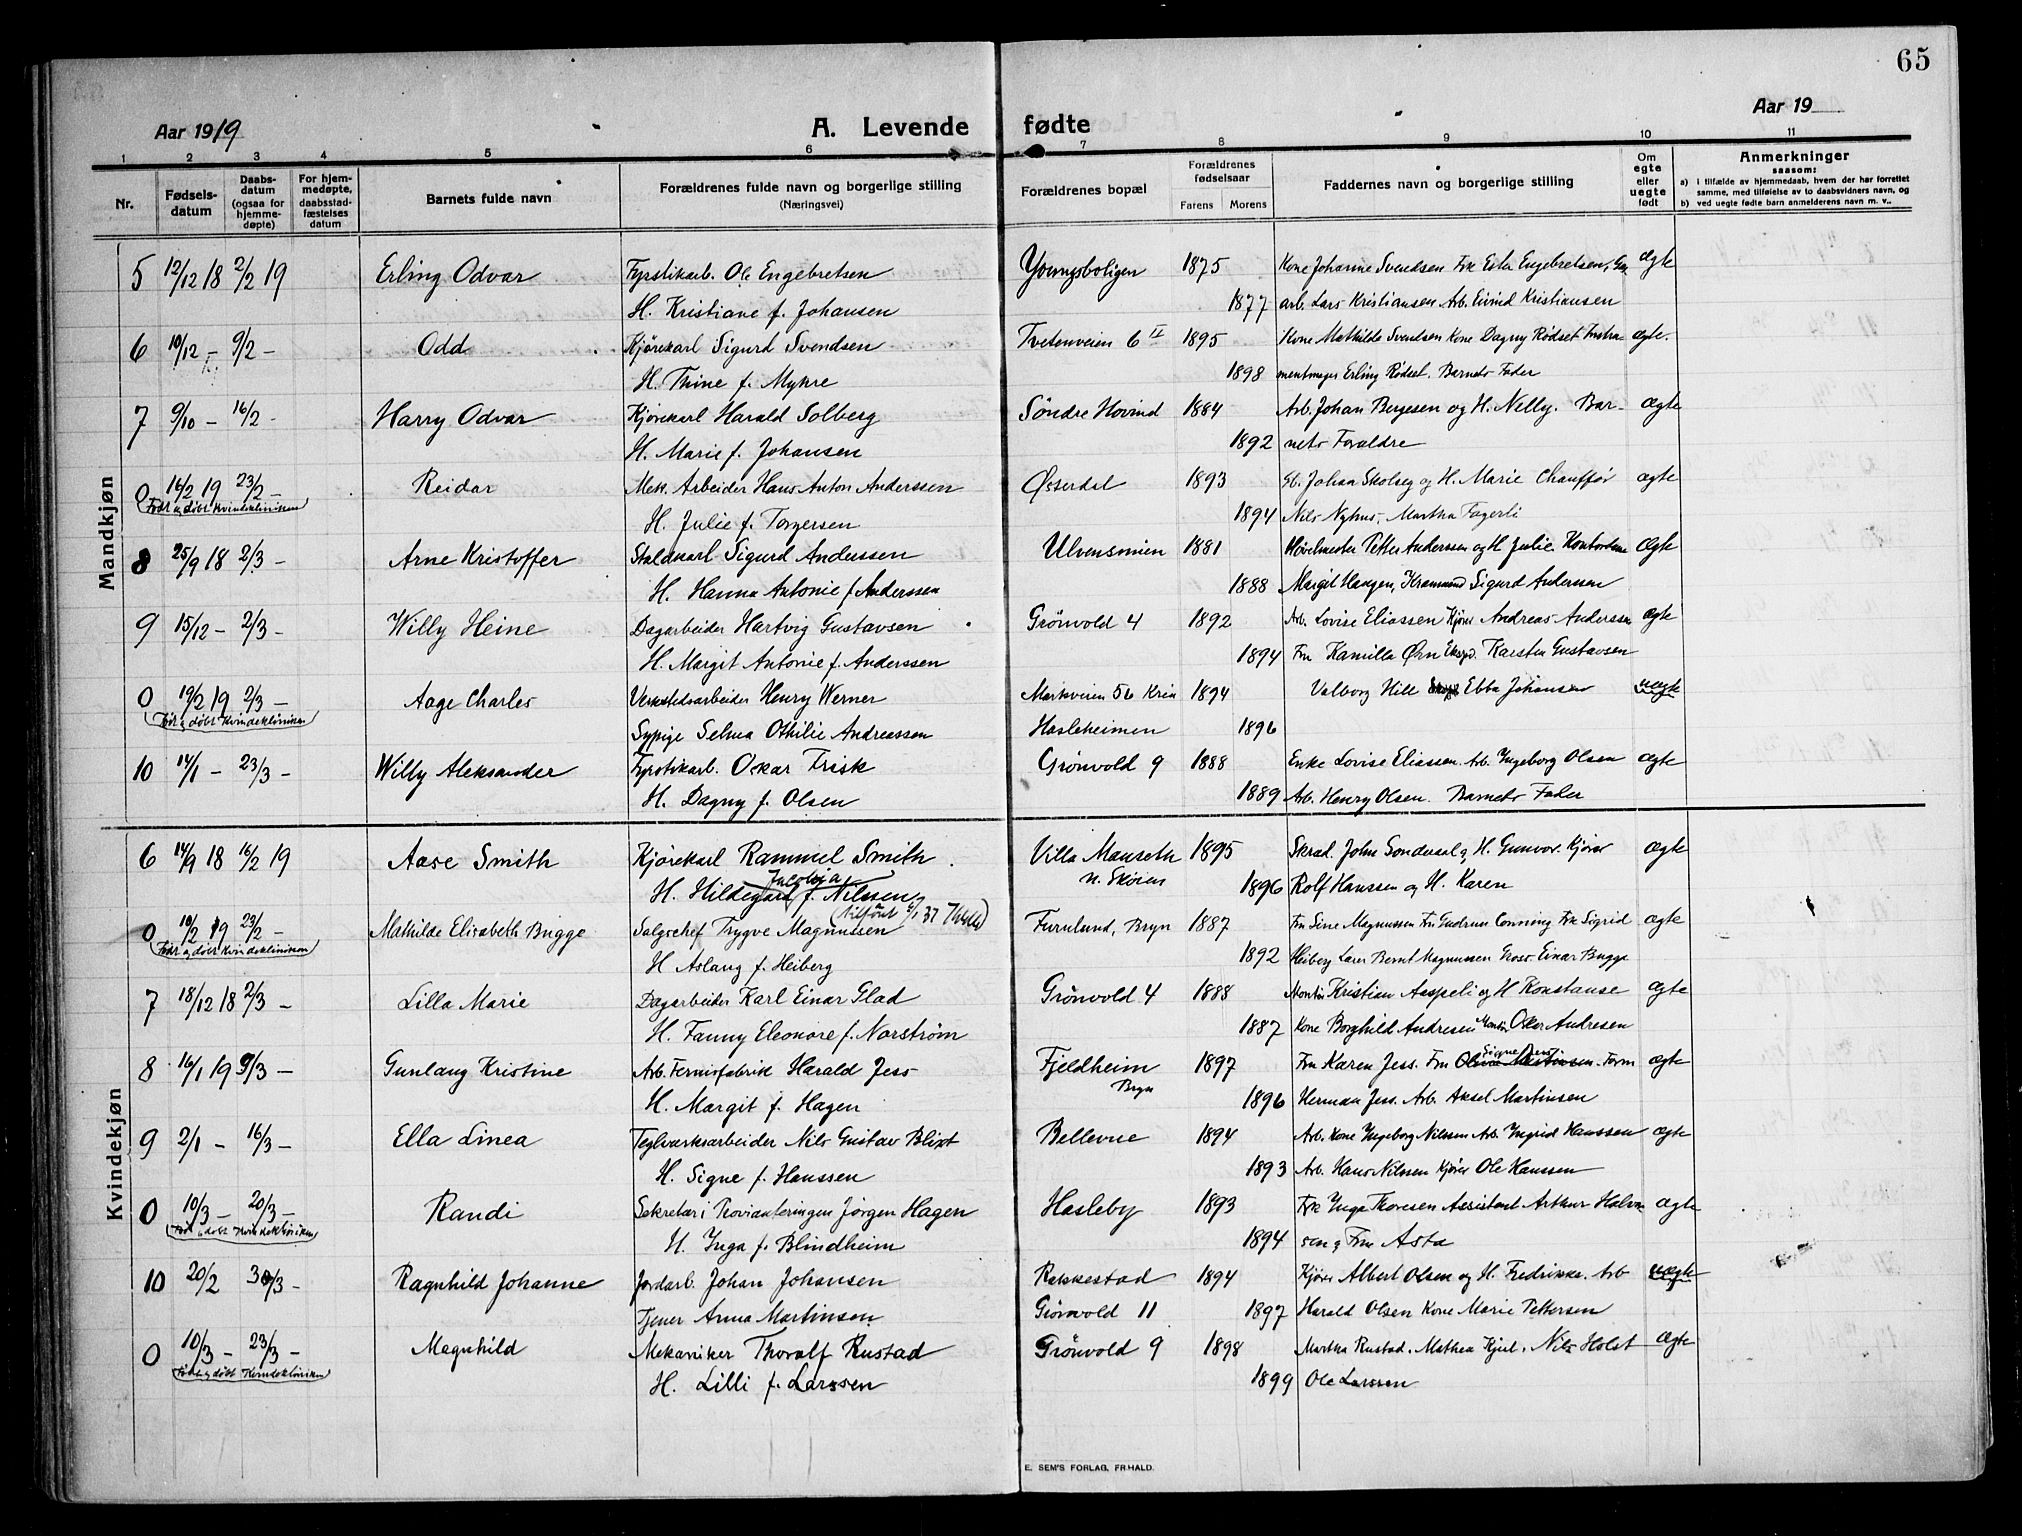 65
Aar 1919
A. Levende fødte
Aar 19
1 2 3 4 5 6 7 8 9 10 11
Nr.
Fødsels-
datum
Daabs-
datum
(ogsaa for
hjemme-
døpte)
For hjem-
medøpte,
daabsstad-
fæstelses
datum
Barnets fulde navn
Forældrenes fulde navn og borgerlige stilling
(Næringsvei)
Forældrenes bopæl
Forældrenes
fødselsaar
Farens Morens
Faddernes navn og borgerlige stilling
Om
egte
eller
uegte
født
Anmerkninger
saasom:
a) i tilfælde av hjemmedaab, hvem der har forrettet
samme, med tilføielse av to daabsvidners navn, og
b) ved uegte fødte barn anmelderens navn m. v..
Mandkjøn
5 12/12 18 2/2 19 Erling Odvar Fyrstikarb. Ole Engebretsen Youngsboligen 1875 Kone Johanne Svendsen Frk Ester Engebretsen, ægte
H. Kristiane f. Johansen 1877 arb. Lars Kristiansen Arb. Eivind Kristiansen
6 10/12 – 9/2 – Odd Kjørekarl Sigurd Svendsen Tvetenveien 6 II 1895 Kone Mathilde Svendsen Kone Dagny Rødset Instru- ægte.
H. Thine f. Myhre 1898 mentmager Erling Rødset. Barnets Fader
7 9/10 – 16/2 – Harry Odvar Kjørekarl Harald Solberg Søndre Hovind 1884 Arb. Johan Børgesen og H. Nelly. Bar- ægte
H. Marie f. Johansen 1892 nets Forældre
0 16/2 19 23/2 – Reidar Mek. Arbeider Hans Anton Anderssen Østerdal 1893 Johan Skolseg og H. Marie Chauffør ægte
Født og døbt Kvindeklinikken H. Julie f. Torgersen 1894 Nils Nyhus, Martha Fagerli
8 25/9 18 2/3 – Arne Kristoffer Staldkarl Sigurd Anderssen Ulvensmien 1881 Høvelmester Petter Anderssen og H Julie. ægte
H. Hanna Antonie f Anderssen 1888 Margit Haugen, Sigurd Anderssen
9 15/12 – 2/3 – Willy Heine Dagarbeider Hartvig Gustavsen Grönvold 4 1892 Arb. Lovise Eliassen Kjører Andreas Anderssen ægte
H. Margit Antonie f. Anderssen 1894 Fru Kamilla Ørn Eksped. Karsten Gustavsen
0 19/2 19 2/3 – Aage Charles Verkstedsarbeider Henry Werner Markveien 56 Kria 1894 Valborg Hill Ebba Johansen uægte
Født og døbt Kvindeklinikken Sypige Selma Othilie Andreassen Hasleheimen 1896
10 14/1 – 23/3 – Willy Aleksander Fyrstikarb. Oskar Frisk Grönvold 9 1888 Enke Lovise Eliassen. Arb. Ingeborg Olsen ægte
H. Dagny f. Olsen 1889 Arb. Henry Olsen. Barnets Fader
Kvindekjøn
6 14/9 18 16/2 19 Aase Smith Kjørekarl Rammel Smith Villa Mauseth 1895 Skræd. John Sondersel og H. Gunvor. Kjører ægte
Jacobja
H. Hildegard f. Nilssen n. Skøien 1896 Rolf Hanssen og H. Karen
0 19/2 19 23/2 – Mathilde Elisabeth Bugge Salgschef Trygve Magnussen Furulund, Bryn 1887 Fru Sine Magnussen Fru Gudrun Conning Frk Sigrid ægte
Født og døbt Kvindeklinikken H Aslaug f. Heiberg 1892 Heiberg Lærer Bernt Magnussen Gross. Einar Bugge
7 18/12 18 2/3 – Lilla Marie Dagarbeider Karl Einar Glad Grönvold 4 1888 Montør Kristian Aaspeli og H Konstanse ægte
H. Fanny Eleonore f. Norström 1887 Kone Borghild Andresen Montør Oskar Andresen
8 16/1 19 9/3 – Gunlaug Kristine Arb. Fernisfabrik Harald Jess Fjeldheim 1897 Fru Karen Jess. Fru Olivia Martinsen. Form ægte
H. Margit f. Hagen Bryn 1896 Herman Jess. Arb. Aksel Martinsen
9 2/1 – 16/3 – Ella Linea Teglværksarbeider Nils Gustav Blixt Bellevue 1894 Arb. Kone Ingeborg Nilssen Arb. Ingrid Hanssen ægte
H. Signe f. Hanssen 1893 Arb. Hans Nilssen Kjører Ole Hanssen
0 10/3 – 20/3 – Randi Sekretær i Provianteringen Jørgen Hagen Hasleby 1893 Frk Inga Thoresen Assistent Arthur Halvor- ægte
Født og døbt Kvindeklinikken H. Inga f. Blindheim 1894 sen og Fru Asta
10 20/2 30/3 – Ragnhild Johanne Jordarb. Johan Johansen Rakkestad 1894 Kjører Albert Olsen og H. Fredrikke. Arb uægte
Tjener Anna Martinsen Grönvold 11 1897 Harald Olsen Kone Marie Pettersen
0 10/3 – 23/3 – Magnhild Mekaniker Thoralf Rustad Grönvold 9 1898 Martha Rustad. Mathea Kjul. Nils Holst ægte
Født og døbt Kvindeklinikken H. Lilli f. Larssen 1899 Ole Larssen
E. SEM'S FORLAG, FR.HALD.